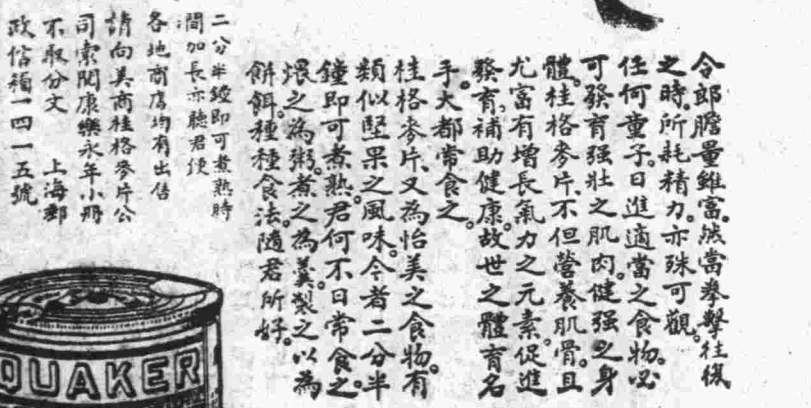 令郎膽量雖富。然當拳擊往復
之時。所耗精力。亦殊可觀。
任何童子。日進適當之食物。必
可發育强壯之肌肉。健强之身
體。桂格麥片、不但營養肌骨。且
尤富有增長氣力之元素。促進
發育、補助健康。故世之體育名
手。大都常食之。
桂格麥片、又為怡美之食物。有
類似堅果之風味。今者二分半
鐘即可煮熟。君何不日常食之。
煨之為粥。煮之為羹。製之以為
餅餌。種種食法。隨君所好。
二分半鐘即可煮熟時
澗加長亦聽君便
各地商店均有出售
請向美商桂格麥片公
司索閱康樂永年小冊
不取分文　上海郵
政信箱一四一五號
QUAKER